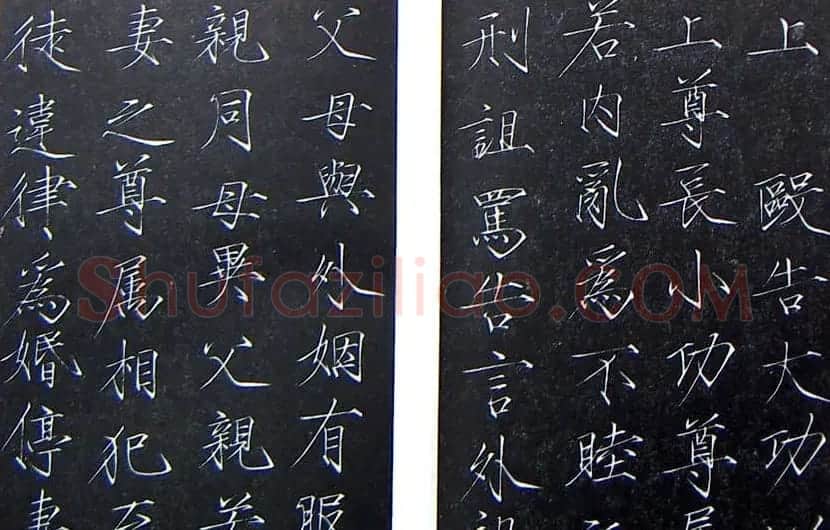 上 毆告大功
上尊長小功尊属
若內亂爲不睦
刑詛罵告言外祖
父母與外姻有服
親同母異父親若
妻之尊属相犯至
徒違律爲婚停妻
Shufaziliao.COM